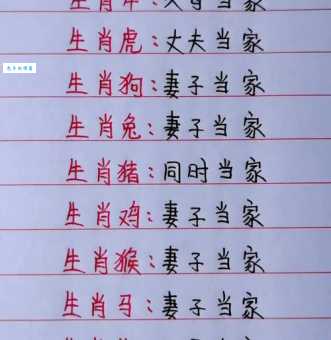 生肖虎:丈夫当家
生肖狗:妻子当家
生肖兔:妻子当家
生肖猪:同时当家
生肖鸡:妻子当家
生肖猴:妻子当家
生肖马:妻子当家